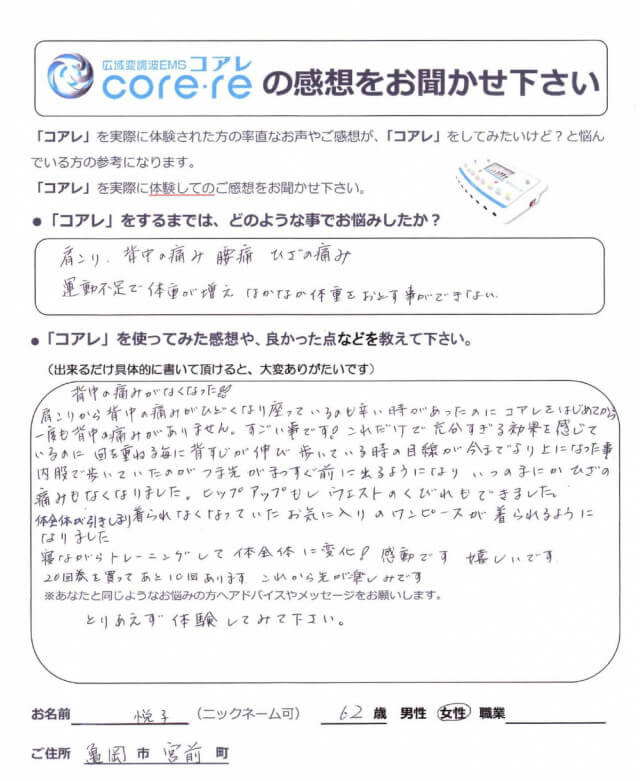 広域変調波EMS コアレ
core·re の感想をお聞かせ下さい
「コアレ」を実際に体験された方の率直なお声やご感想が、「コアレ」をしてみたいけど？と悩ん
でいる方の参考になります。
「コアレ」を実際に体験してのご感想をお聞かせ下さい。
● 「コアレ」をするまでは、どのような事でお悩みしたか？
肩こり、背中の痛み 腰痛 ひざの痛み
運動不足で体重が増え なかなか体重をおとす事ができない
● 「コアレ」を使ってみた感想や、良かった点などを教えて下さい。
（出来るだけ具体的に書いて頂けると、大変ありがたいです）
背中の痛みがなくなった!!
肩こりから背中の痛みがひどくなり座っているのも辛い時があったのに コアレをはじめてから
一度も背中の痛みがありません。すごい事です! これだけで充分すぎる効果を感じて
いるのに 回を重ねる毎に背すじが伸び 歩いている時の目線が今までより上になった事
内股で歩いていたのがつま先がまっすぐ前に出るようになり いつのまにかひざの
痛みもなくなりました。ヒップアップもし ウエストのくびれもできました。
体全体が引きしまり着られなくなっていたお気に入りのワンピースが着られるように
なりました
寝ながらトレーニングして体全体に変化! 感動です 嬉しいです
20回券を買ってあと10回あります これから先が楽しみです
※あなたと同じようなお悩みの方へアドバイスやメッセージをお願いします。
とりあえず体験してみて下さい。
お名前 悦子 （ニックネーム可） 62 歳 男性 女性 職業
ご住所 亀岡 市 宮前 町